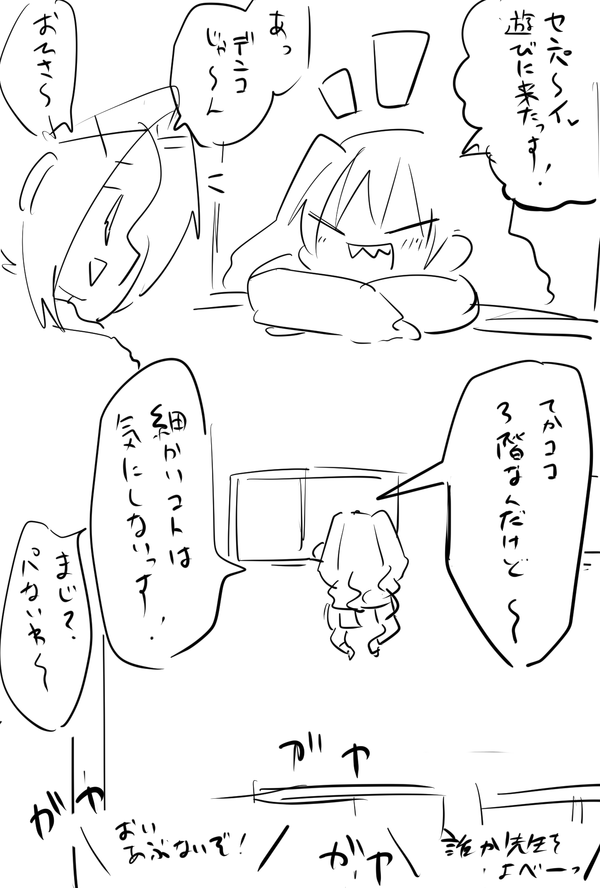 センパ〜イ
遊びに来たっす!
あっ
デンコ
じゃ〜ん
おひさ〜
てかココ
3階なんだけど〜
細かいコトは
気にしないっす!
まじ?
パないわ〜
ガヤ
ガヤ
おい
あぶないぞ!
ガヤ
誰か先生を
よべーっ